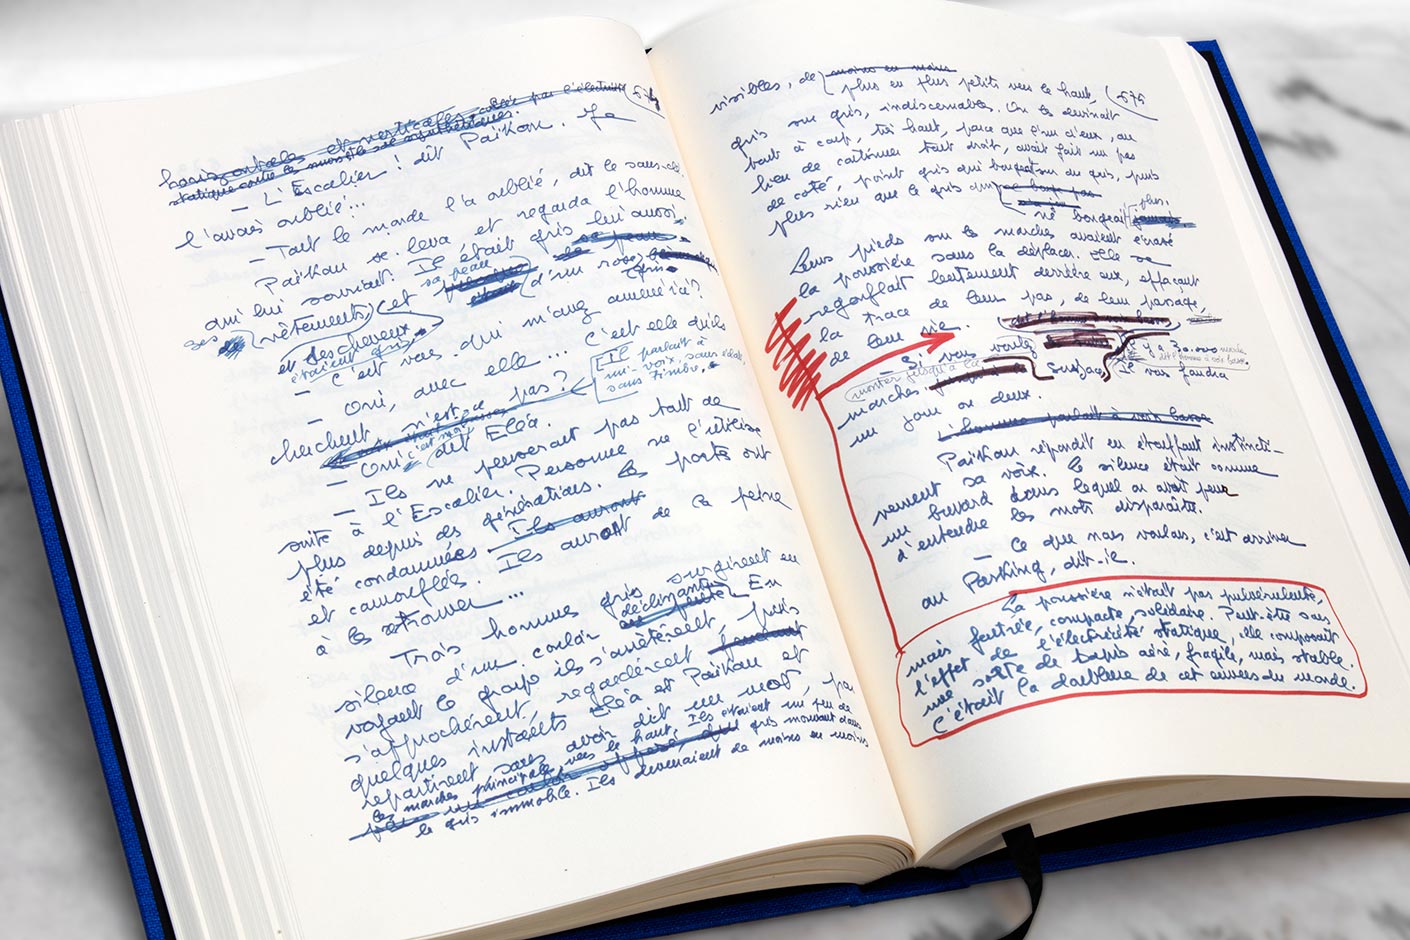 horizontales et verticales, collée par l'électricité
statique contre les murs
— L'Escalier ! dit Païkan. Je
l'avais oublié...
— Tout le monde l'a oublié, dit le sans-clé.
Païkan se leva et regarda l'homme
qui lui souriait. Il était gris lui aussi.
ses vêtements et sa peau d'un rose gris.
et ses cheveux
étaient gris.
— C'est vous qui m'avez amené ici ?
— Oui, avec elle... C'est elle qu'ils
Il parlait à
mi-voix, sans éclats,
sans timbre.
cherchent n'est-ce pas ?
— Oui c'est moi dit Eléa.
— Ils ne penseront pas tout de
suite à l'Escalier. Personne ne l'utilise
plus depuis des générations. Les portes ont
été condamnées Ils auront
et camouflées. Ils auront de la peine
à les retrouver...
Trois hommes gris surgirent en
silence d'un couloir déclinant. En
voyant le groupe ils s'arrêtèrent, puis
s'approchèrent, regardèrent Païkan et
quelques instants Eléa et Païkan et
repartirent sans avoir dit un mot, par
les marches principales, vers le haut. Ils étaient un peu de
gris mouvant dans
le gris immobile. Ils devenaient de moins en moins
visibles, de moins en moins
plus en plus petits vers le haut, 575
gris sur gris, indiscernables. On les devinait
tout à coup, très haut, parce que l'un d'eux, au
lieu de continuer tout droit, avait fait un pas
de côté, point gris qui bougeait sur du gris, puis
plus rien que le gris qui ne bougeait plus.
Leurs pieds sur les marches avaient écrasé
la poussière sans la déplacer. Elle se
regonflait lentement derrière eux, effaçant
la trace de leur pas, de leur passage,
de leur vie.
— Si vous voulez
monter jusqu'à la Surface, il y a 30.000 marches
dit l'homme à voix basse.
marches. Il vous faudra
un jour ou deux.
l'homme parlait à voix basse
Païkan répondit en étouffant instincti-
vement sa voix. Le silence était comme
un buvard dans lequel on avait peur
d'entendre les mots disparaître.
— Ce que nous voulons, c'est arriver
au Parking, dit-il.
La poussière n'était pas pulvérulente,
mais feutrée, compacte, solidaire. Peut-être sous
l'effet de l'électricité statique, elle composait
une sorte de tapis aéré, fragile, mais stable.
C'était la doublure de cet envers du monde.